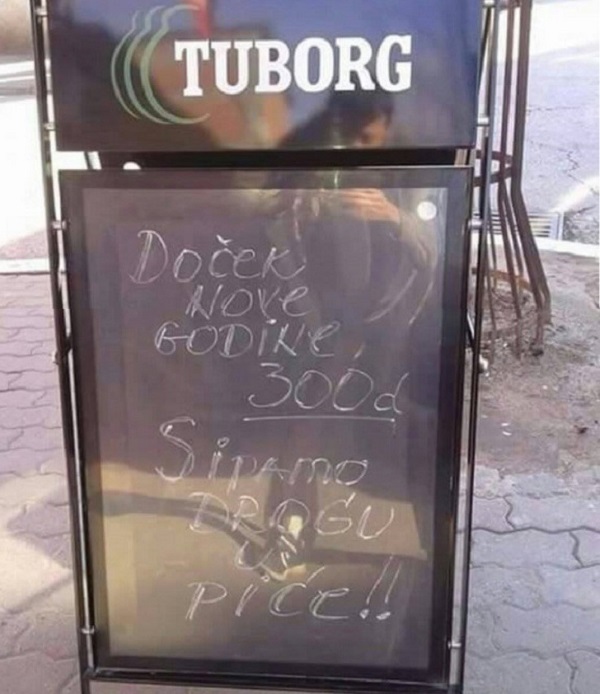 TUBORG
Doček
Nove
GODINE,
300d
Sipamo
DROGU
U
PIĆE!!